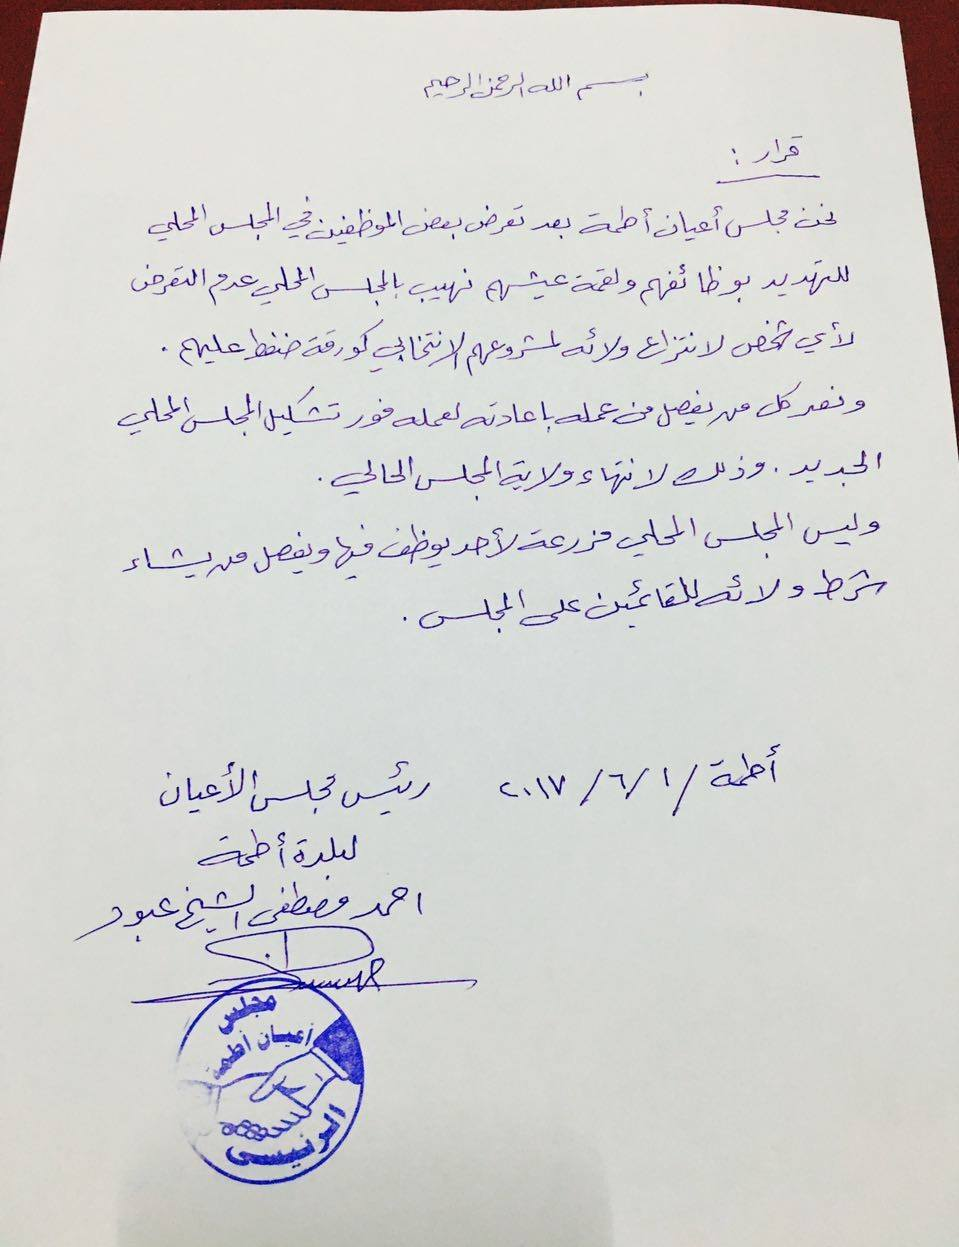 بسم الله الرحمن الرحيم
قرار :
نحن مجلس أعيان أطمة بعد تعرض بعض الموظفين في المجلس المحلي
للتهديد بوظائفهم ولقمة عيشهم نهيب بالمجلس المحلي عدم التعرض
لأي شخص لانتزاع ولائه لمشروعهم الانتخابي كورقة ضغط عليهم .
ونعد كل من يفصل من عمله باعادته لعمله فور تشكيل المجلس المحلي
الجديد . وذلك لانتهاء ولاية المجلس الحالي .
وليس المجلس المحلي مزرعة لأحد يوظف فيها ويفصل من يشاء
شرط ولائه للقائمين على المجلس .
أطمة / ١ / ٦ / ٢٠١٧ رئيس مجلس الأعيان
لبلدة أطمة
احمد مصطفى الشيخ عبود
مجلس
أعيان أطمة
الرئيسي